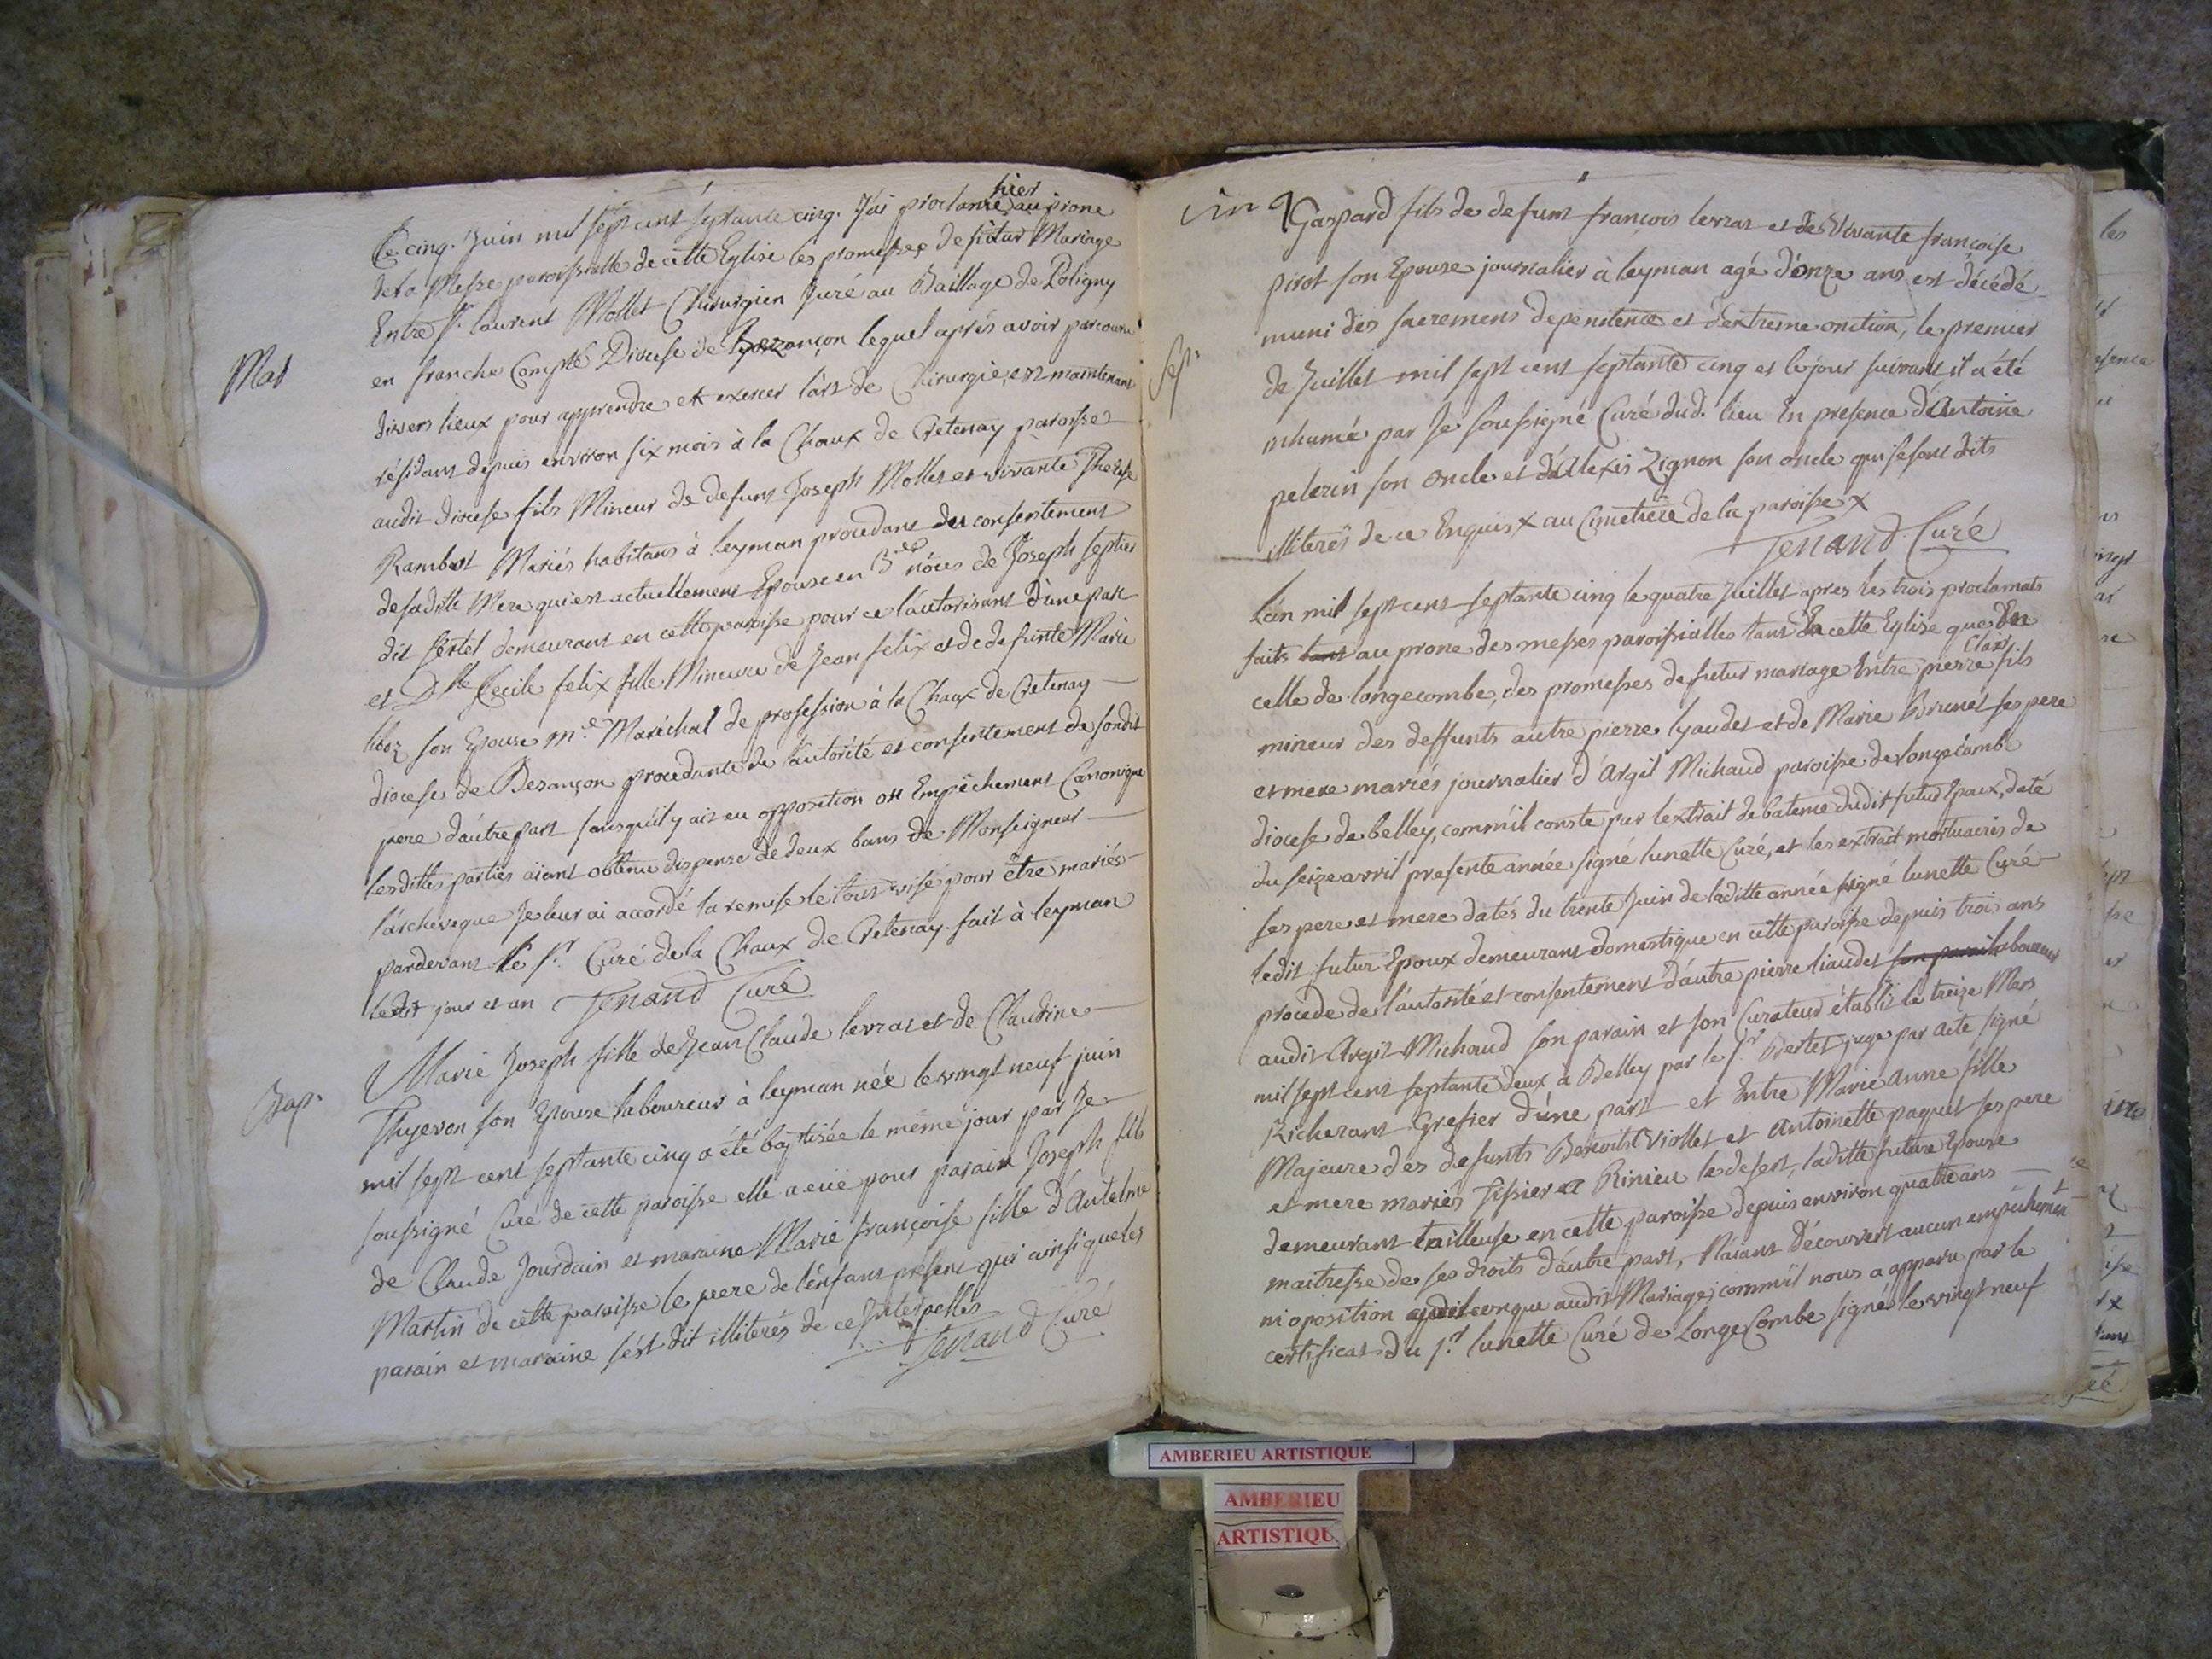 Mar
Le cinq Juin mil sept cent septante cinq. J'ai proclamé hier au prone
de la Messe paroissialle de cette Eglise les promesses de futur Mariage
Entre Sr. laurent Mollet Chirurgien Juré au Baillage de Poligny
en franche Compté Diocese de Bezançon lequel aprés avoir parcouru
divers lieux pour apprendre et exercer l'art de Chirurgie, est maintenant
résidant depuis environ six mois à la Chaux de Cretenay paroisse
audit diocese fils Mineur de defunt Joseph Mollet et vivante Therese
Rambert Mariés habitans à leyman procedant du consentement
de sa ditte Mere qui est actuellement Epouse en 3des nôces de Joseph
dit demeurant en cette paroisse pour ce l'autorisant d'une part
et Dlle Cecile felix fille Mineure de Jean felix et de defunte Marie
son Epouse Me Maréchal de profession à la Chaux de Cretenay
diocese de Besançon procedante de l'autorité et consentement de sondit
pere d'autre part sans qu'il y ait eu opposition ou Empêchement Canonique
lesdittes parties aiant obtenu dispense de deux bans de Monseigneur
l'archeveque Je leur ai accordé la remise le tout visé pour être mariés
pardevant le Sr. Curé de la Chaux de Cretenay. fait à leyman
ledit jour et an Tenand Curé
Bap.
Marie Joseph fille de Jean Claude levrat et de Claudine
Thyevon son Epouse laboureur à leyman née le vingt neuf juin
mil sept cent septante cinq a été baptisée le même jour par Je
soussigné Curé de cette paroisse elle a eüe pour parain Joseph fils
de Claude Jourdain et maraine Marie françoise fille d'Antelme
Martin de cette paroisse le pere de l'enfant présent qui ainsi que les
parain et maraine s'est dit illiterés de ce Interpellés
Tenand Curé
Sep.
Gaspard fils de defunt françois levrat et de vivante françoise
pirot son Epouse journalier à leyman agé d'onze ans est décédé
muni des sacremens de penitence et d'extreme onction, le premier
de Juillet mil sept cent septante cinq et le jour suivant il a été
inhumé par Je soussigné Curé dud. lieu En presence d'Antoine
pelerin son oncle et d'Alexis Zignon son oncle qui se sont dits
illiterés de ce Enquis X au Cimetiere de la paroisse X
Tenand Curé
L'an mil sept cent septante cinq le quatre Juillet apres les trois proclamats
faits tant au prone des messes paroissialles tant En cette Eglise que En
celle de longecombe, des promesses de futur mariage Entre pierre Clair fils
mineur des deffunts autre pierre lyaudet et de Marie Brunet ses pere
et mere mariés journalier d'Argit Michaud paroisse de longecombe
diocese de belley, comm'il conste par l'extrait de bateme dudit futur Epoux, daté
du seize avril presente année signé lunette Curé, et les extrait mortuaires de
ses pere et mere datés du trente Juin de laditte année signé lunette Curé
ledit futur Epoux demeurant domestique en cette paroisse depuis trois ans
procede de l'autorité et consentement d'autre pierre liaudet son parain laboureur
audit Argit Michaud son parain et son Curateur établi le treize Mars
mil sept cent septante deux à Belley par le Sr. Bertet juge par acte signé
Richerant Grefier d'une part et Entre Marie Anne fille
Majeure des defunts Benoit Viollet et Antoinette paquet ses pere
et mere mariés Tissier a Rinieu le desert, laditte future Epouse
demeurant tailleuse en cette paroisse depuis environ quatre ans
maitresse de ses droits d'autre part, N'aiant découvert aucun empêchement
ni oposition quelconque audit Mariage; comm'il nous a apparu par le
certificat du Sr. lunette Curé de Longe Combe signé le vingt neuf
AMBERIEU ARTISTIQUE
AMBERIEU
ARTISTIQU